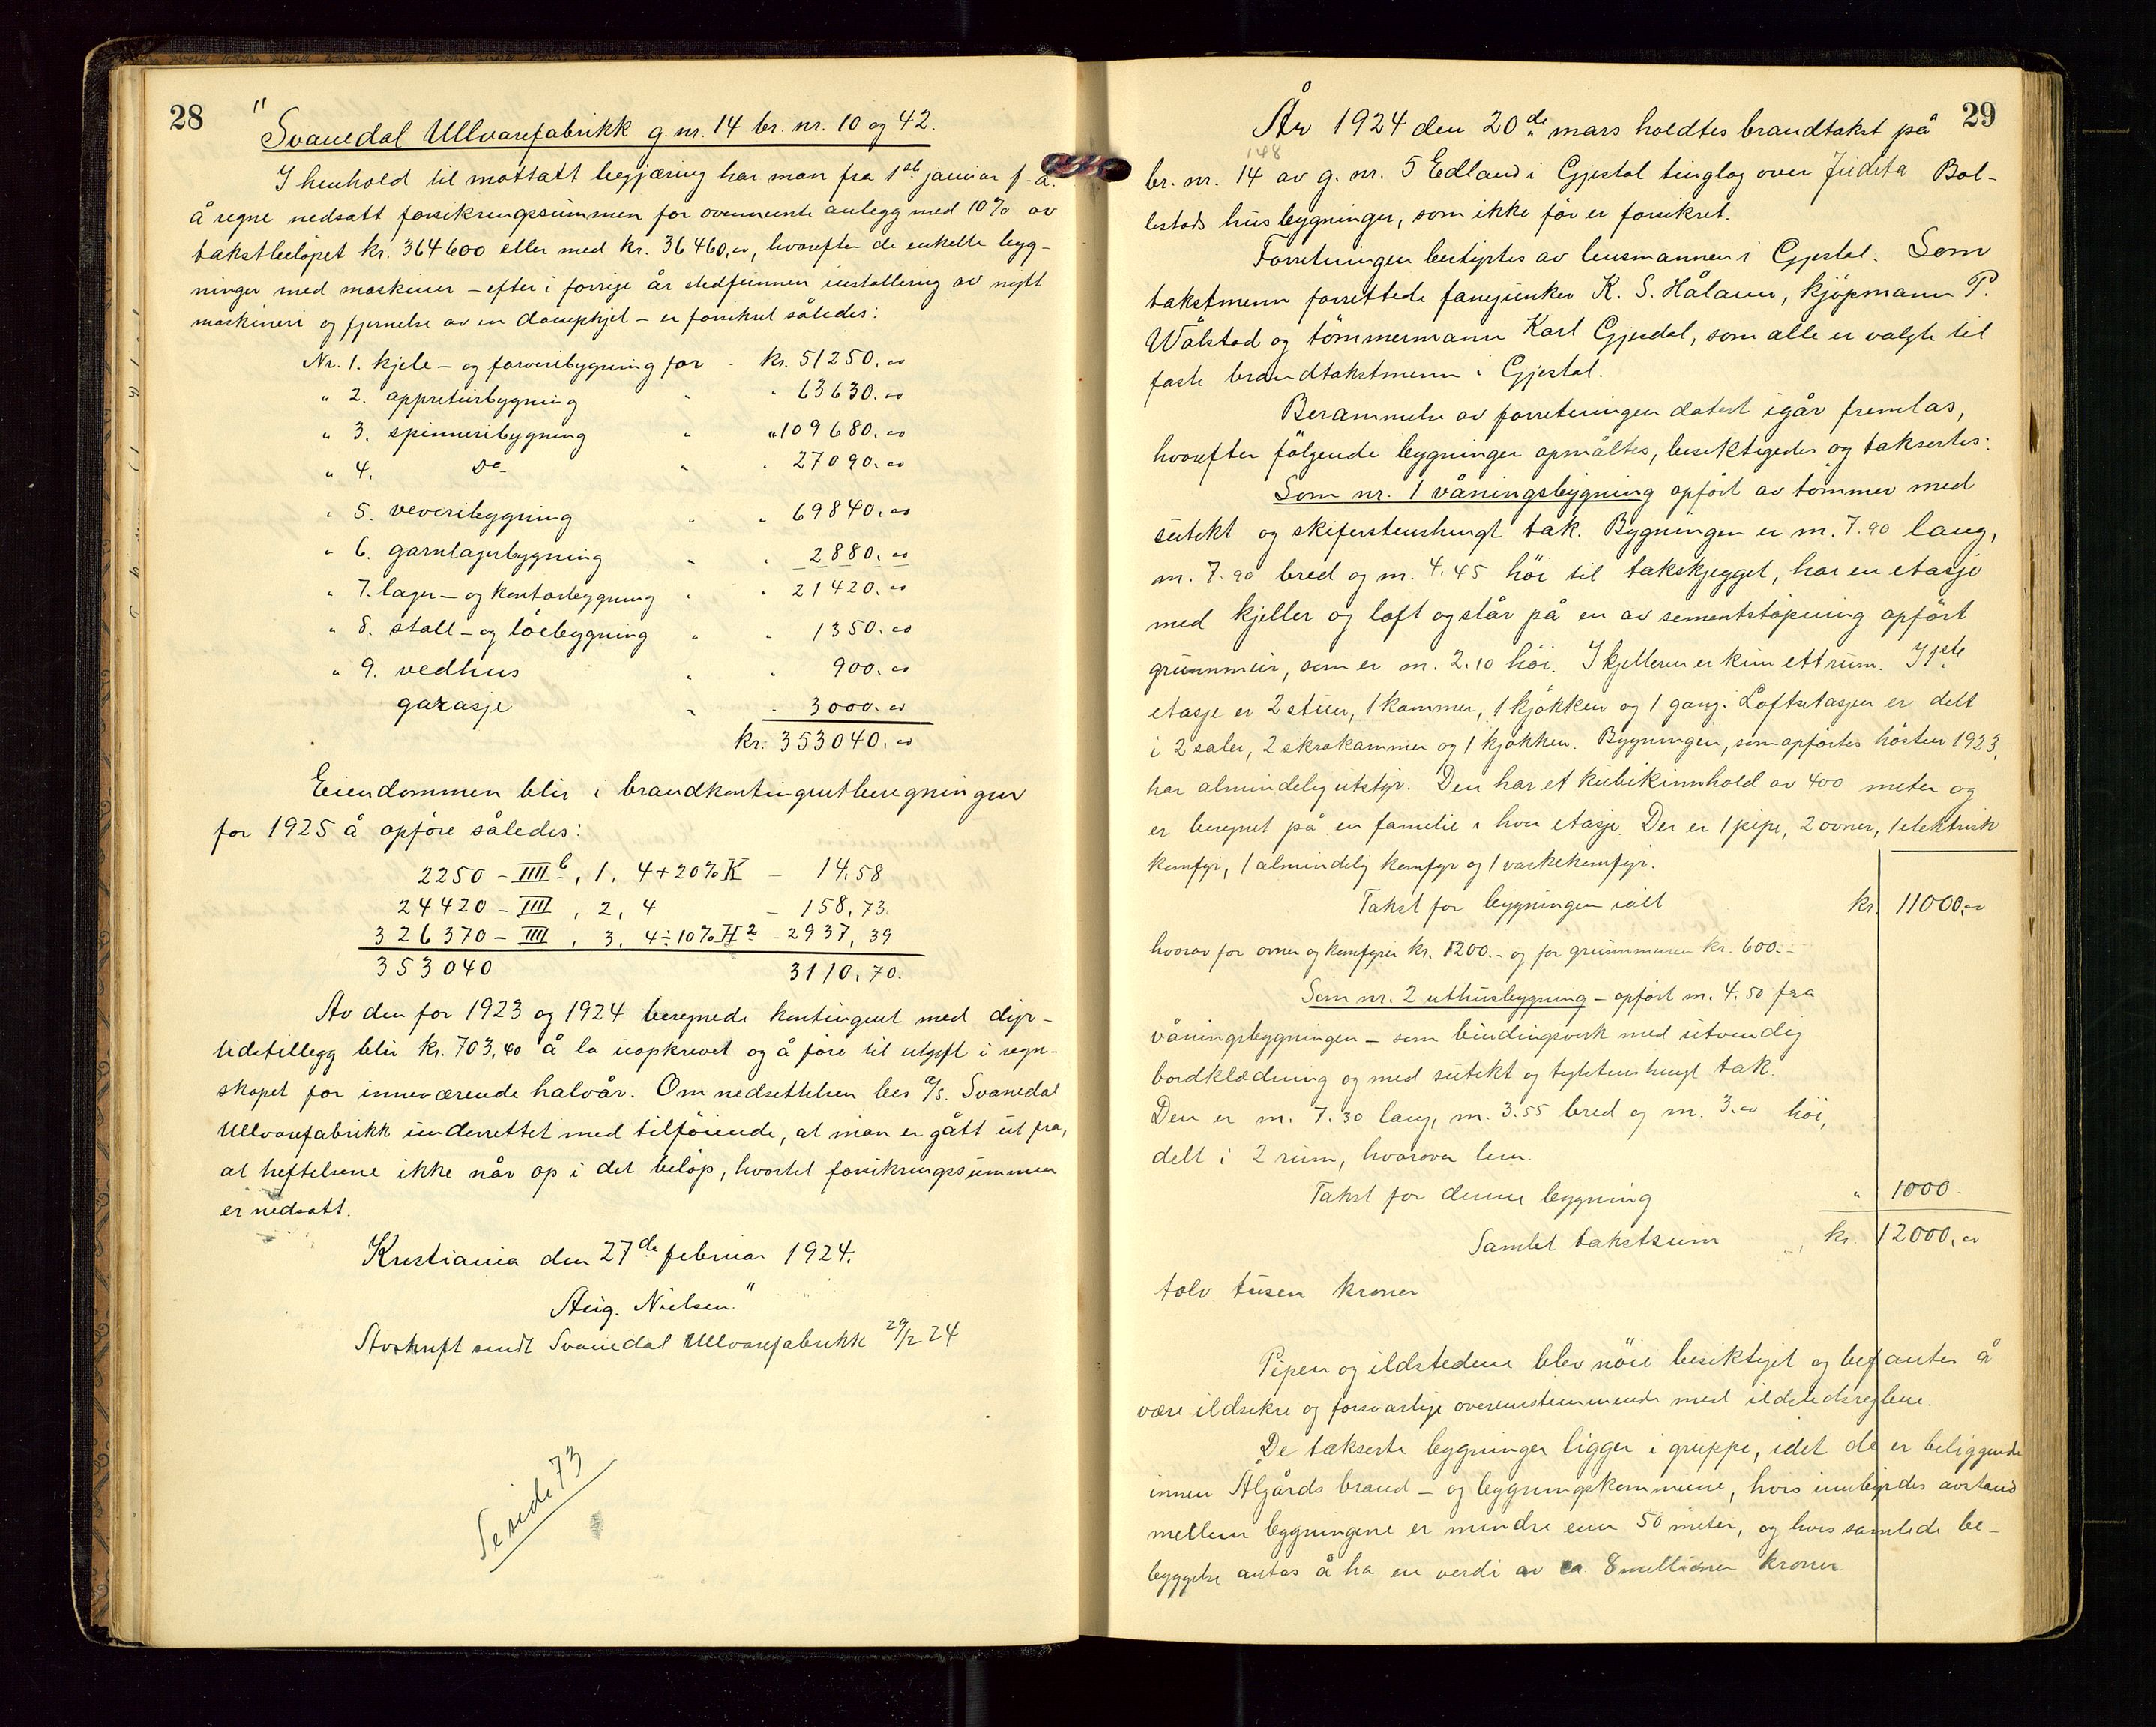 28
"Svanedal Ullvarefabrikk g. nr. 14 br. nr. 10 og 42.
I henhold til mottatt begjæring har man fra 1ste januar f.å.
å regne nedsatt forsikringssummen for ovennevnte anlegg med 10% av
takstbeløpet kr. 364600 eller med kr. 36460,00, hvorefter de enkelte byg-
ninger med maskiner – efter i forrige år stedfunnen installering av nytt
maskineri og fjernelse av en dampkjel – er forsikret således:
Nr. 1. kjele – og farveribygning for - kr. 51250.00
" 2. appreturbygning " " 63630.00
" 3. spinneribygning " " 109680.00
" 4. Do " " 27090.00
" 5. veveribygning " " 69840.00
" 6. garnlagerbygning " " 2880.00
" 7. lager – og kontorbygning " " 21420.00
" 8. stall – og löebygning " " 1350.00
" 9. vedhus " " 900.00
garasje " " 3000.00
kr. 353040.00
Eiendommen blir i brandkontingentberegningen
for 1925 å opföre således:
2250 – IIII b, 1. 4+20% K – 14.58
24420 – IIII, 2, 4 – 158,73.
326370 – IIII, 3, 4÷10% H2 - 2937,39
353040 3110,70.
Av den for 1923 og 1924 beregnede kontingent med dyr-
tidstillegg blir kr. 703,40 å la uopkrevet og å före til utgift i regn-
skapet for inneværende halvår. Om nedsettelsen bes A/S. Svanedal
Ullvarefabrikk underrettet med tilföiende, at man er gått ut fra,
at heftelsene ikke når op i det belöp, hvortil forsikringssummen
er nedsatt.
Kristiania den 27de februar 1924.
Aug. Nielsen."
Avskrift sendt Svanedal Ullvarefabrikk 29/2 24
Se side 73
29
År 1924 den 20de mars holdtes brandtakst på
148
br. nr. 14 av g. nr. 5 Edland i Gjestal tinglag over Judita Bol-
lestads husbygninger, som ikke för er forsikret.
Forretningen bestyrtes av lensmannen i Gjestal. Som
takstmenn forrettede fanejunker K. S. Håland, kjöpmann P.
Wålstad og tömmermann Karl Gjesdal, som alle er valgte til
faste brandtakstmenn i Gjestal.
Berammelse av forretningen datert igår fremlas,
hvorefter fölgende bygninger opmåltes, besiktigedes og taksertes:
Som nr. 1 våningsbygning opfört av tömmer med
sutekt og skiferstenshengt tak. Bygningen er m. 7.90 lang,
m. 7.90 bred og m. 4.45 höi til takskjegget, har en etasje
med kjeller og loft og står på en av sementstöpning opfört
grunnmur, som er m. 2.10 höi. I kjelleren er kun ett rum. I 1ste
etasje er 2 stuer, 1 kammer, 1 kjökken og 1 gang. Loftsetasjen er delt
i 2 saler, 2 skrakammer og 1 kjökken. Bygningen, som opförtes hösten 1923,
har almindelig utstyr. Den har et kubikinnhold av 400 meter og
er beregnet på en familie i hver etasje. Der er 1 pipe, 2 ovner, 1 elektrisk
komfyr, 1 almindelig komfyr og 1 vaskekomfyr.
Takst for bygningen ialt kr. 11000,00
hvorav for ovner og komfyrer kr. 1200.- og for grunnmuren kr. 600.-
Som nr. 2 uthusbygning – opfört m. 4.50 fra
våningsbygningen – som bindingsverk med utvendig
bordklædning og med sutekt og teglstenshengt tak.
Den er m. 7.30 lang, m. 3.55 bred og m. 3.00 höi,
delt i 2 rum, hvorover lem.
Takst for denne bygning " 1000.
Samlet takstsum kr. 12000,00
tolv tusen kroner
Pipen og ildstedene blev nöie besiktiget og befantes å
være ildsikre og forsvarlige overensstemmende med ildstedsreglene.
De takserte bygninger ligger i gruppe, idet de er beliggende
innen Ålgårds brand – og bygningskommune, hvis innbyrdes avstand
mellem bygningene er mindre enn 50 meter, og hvis samlede be-
byggelse antas å ha en verdi av ca 8 millioner kroner.